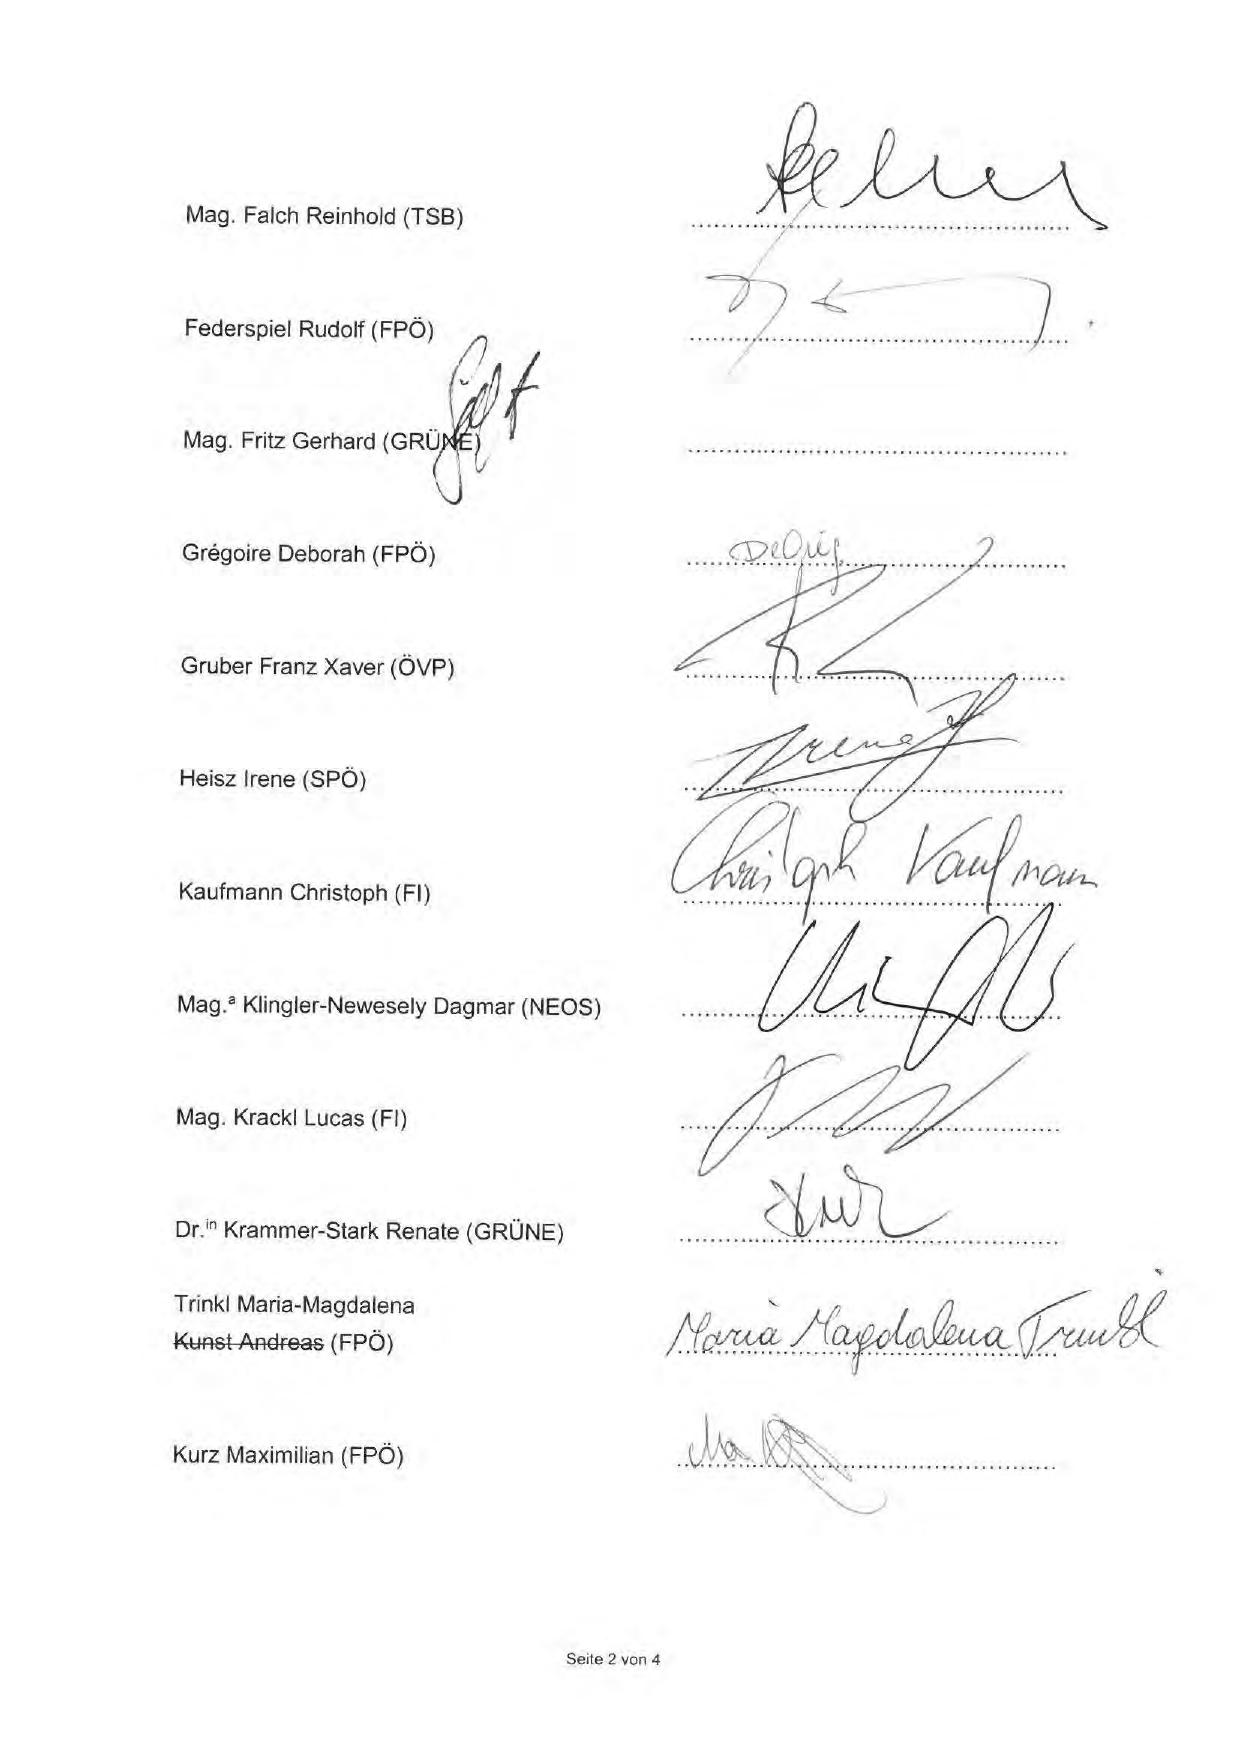 Mag. Falch Reinhold (TSB)
Federspiel Rudolf (FPÖ)
Mag. Fritz Gerhard (GRÜNE)
Grégoire Deborah (FPÖ)
Gruber Franz Xaver (ÖVP)
Heisz Irene (SPÖ)
Irene
Kaufmann Christoph (FI)
Christoph Kaufmann
Mag.ª Klingler-Newesely Dagmar (NEOS)
Mag. Krackl Lucas (FI)
Dr.ⁱⁿ Krammer-Stark Renate (GRÜNE)
Trinkl Maria-Magdalena
Kunst Andreas (FPÖ)
Maria Magdalena Trinkl
Kurz Maximilian (FPÖ)
Seite 2 von 4